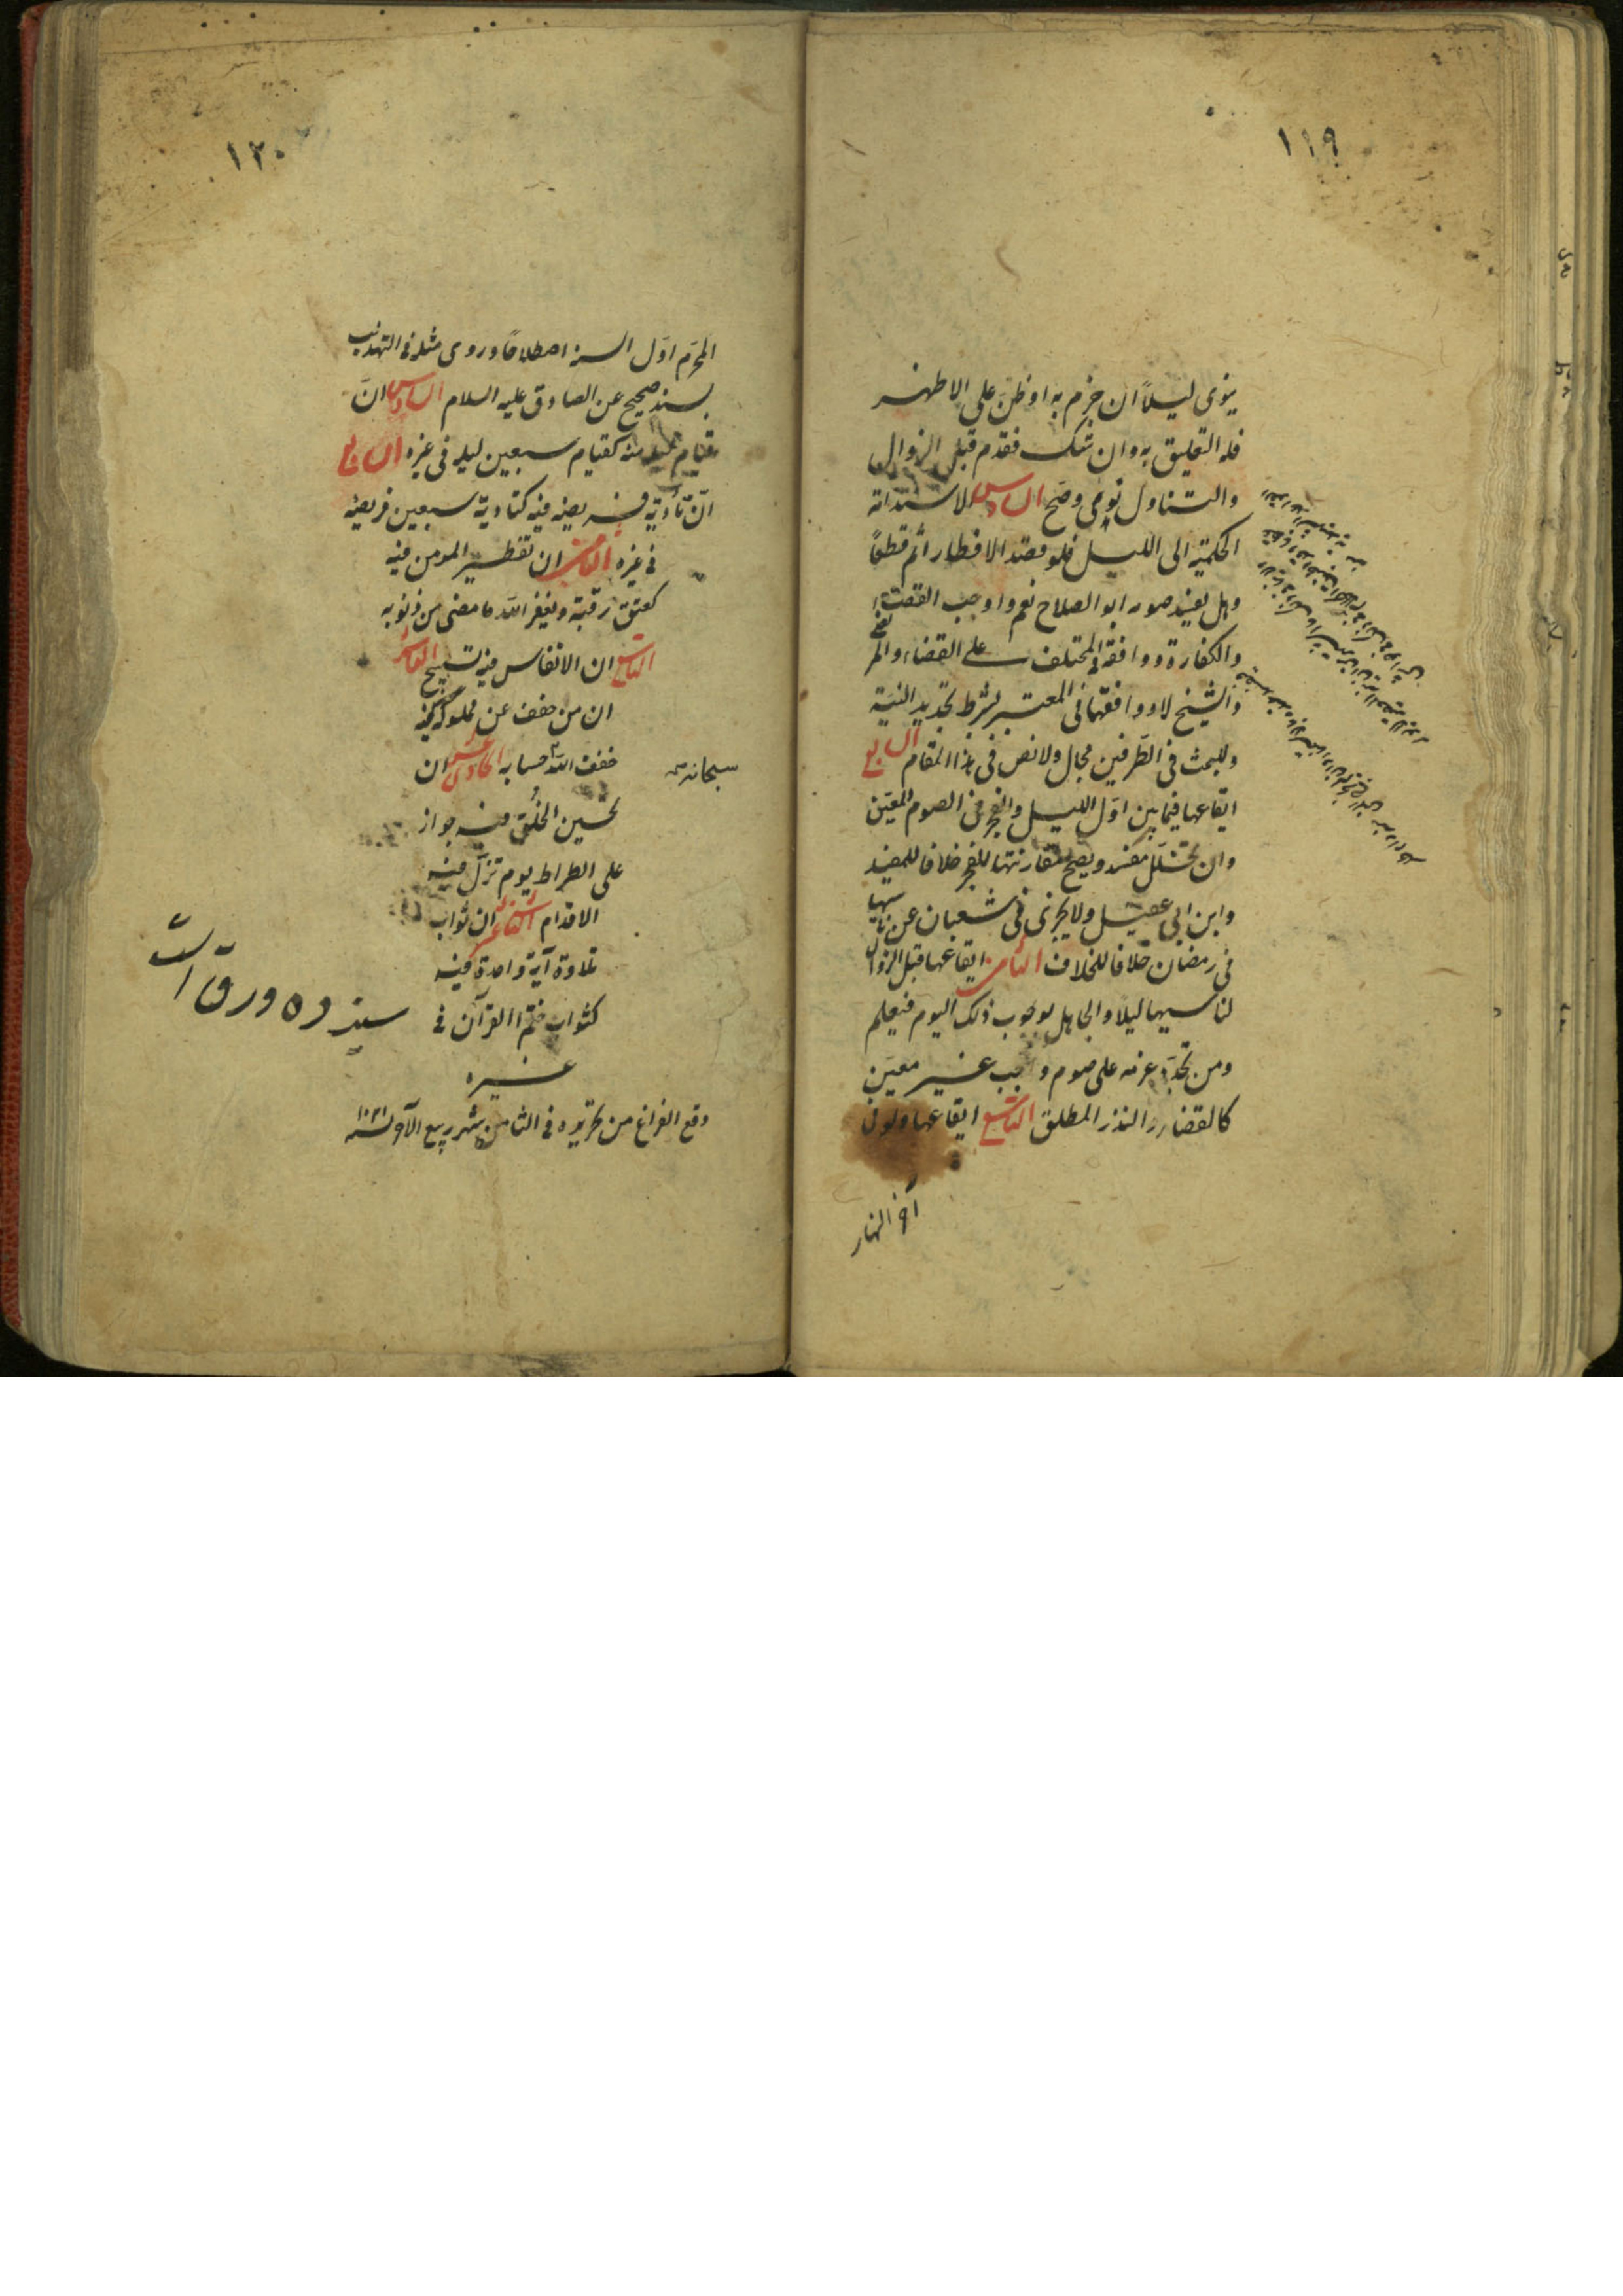 ١١٩
ينوى ليلاً ان جزم به او ظنّ على الاظهر
فله التعليق به وان شك فقدم قبل الزوال
والتناول نوى وصح السادس الاستدامة
الحكمية الى الليل فلو قصد الافطار اثم قطعاً
وهل يفسد صومه ابو الصلاح نعم واوجب القضاء
والكفارة ووافقه في المختلف على القضاء والمرتضى
والشيخ لا ووافقهما في المعتبر بشرط تجديد النية
وللبحث في الطرفين مجال ولا نص في هذا المقام السابع
ايقاعها فيما بين اول الليل والفجر في الصوم المعيّن
وان تخلل مفسد ويصح مقارنتها للفجر خلافا للمفيد
وابن ابي عقيل ولا يجزى في شعبان عن ناسيها
في رمضان خلافا للخلاف الثامن ايقاعها قبل الزوال
لناسيها ليلا والجاهل بوجوب ذلك اليوم فيعلم
ومن تجدّد عزمه على صوم واجب غير معيّن
كالقضاء والنذر المطلق التاسع ايقاعها ولو في
آخر النهار
١٢٠
المحرّم اوّل السنة اصطلاحًا وروى مثله في التهذيب
بسند صحيح عن الصادق عليه السلام السادس انّ
قيام ليلة منه كقيام سبعين ليلة في غيره السابع
انّ تأدية فريضة فيه كتادية سبعين فريضة
في غيره الثامن ان تفطير المومن فيه
كعتق رقبة ويغفر الله ما مضى من ذنوبه
التاسع ان الانفاس فيه تسبيح العاشر
ان من خفف عن مملوكه فيه
خفف الله حسابه الحادى عشر ان
سبحانه
تحسين الخُلق فيه جواز
على الصراط يوم تزلّ فيه
الاقدام الثانى عشر ان ثواب
تلاوة آية واحدة فيه
كثواب ختم القرآن في
غيره
وقع الفراغ من تحريره في الثامن شهر ربيع الآول سنة ١٠٣١
سيزده ورق است